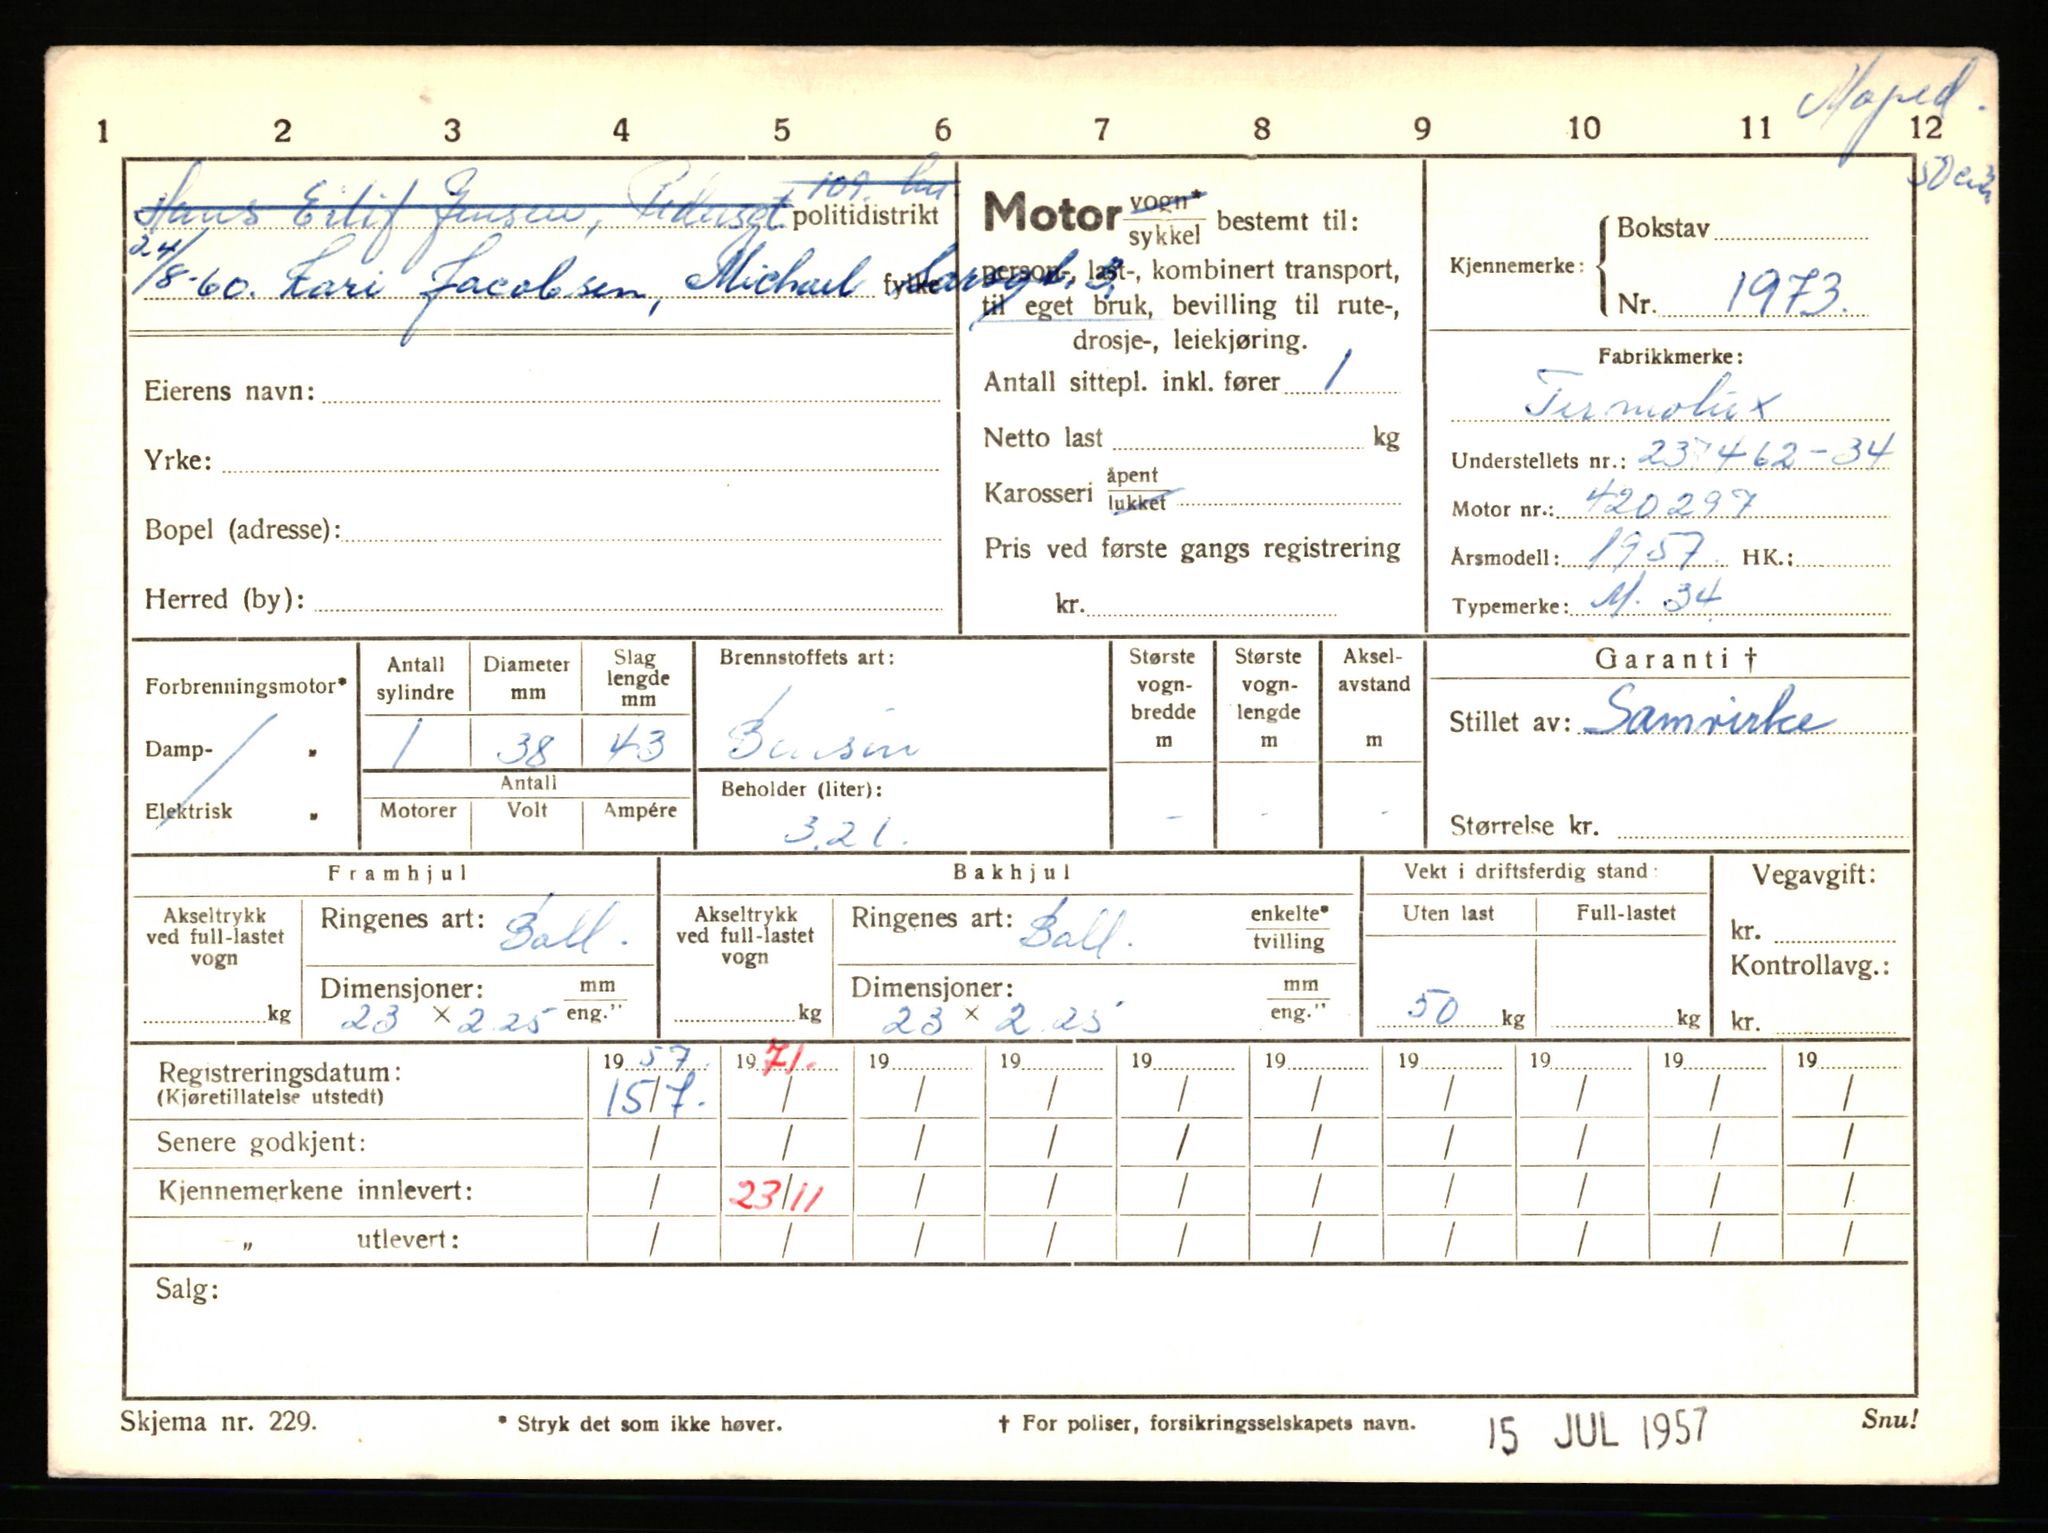 Moped.
1 2 3 4 5 6 7 8 9 10 11 12
50 cm3
109.
Hans Eilif Jensen, politidistrikt
24/8-60. Kari Jacobsen, Michael fylke
Eierens navn:
Yrke:
Bopel (adresse):
Herred (by):
Motor vogn* / sykkel bestemt til:
person-, last-, kombinert transport,
til eget bruk, bevilling til rute-,
drosje-, leiekjøring.
Antall sittepl. inkl. fører 1
Netto last kg
Karosseri åpent / lukket
Pris ved første gangs registrering
kr.
Kjennemerke: Bokstav
Nr. 1973.
Fabrikkmerke:
Termolux
Understellets nr.: 237462-34
Motor nr.: 420297
Årsmodell: 1957. HK.:
Typemerke: M. 34
Forbrenningsmotor*
Damp- „
Elektrisk „
Antall sylindre 1
Diameter mm 38
Slag lengde mm 43
Antall
Motorer Volt Ampére
Brennstoffets art:
Bensin
Beholder (liter):
3,2 l.
Største vogn-bredde m -
Største vogn-lengde m -
Aksel-avstand m -
Garanti †
Stillet av: Samvirke
Størrelse kr.
Framhjul
Akseltrykk ved full-lastet vogn kg
Ringenes art: Ball.
Dimensjoner: mm / eng."
23 × 2.25
Bakhjul
Akseltrykk ved full-lastet vogn kg
Ringenes art: Ball. enkelte* / tvilling
Dimensjoner: mm / eng."
23 × 2.25
Vekt i driftsferdig stand:
Uten last Full-lastet
50 kg kg
Vegavgift:
kr.
Kontrollavg.:
kr.
Registreringsdatum: 19 57. 19 71. 19 19 19 19 19 19 19 19
(Kjøretillatelse utstedt) 15/7. / / / / / / / / /
Senere godkjent: / / / / / / / / / /
Kjennemerkene innlevert: / 23/11 / / / / / / / /
„ utlevert: / / / / / / / / / /
Salg:
Skjema nr. 229. * Stryk det som ikke høver. † For poliser, forsikringsselskapets navn. 15 JUL 1957 Snu!